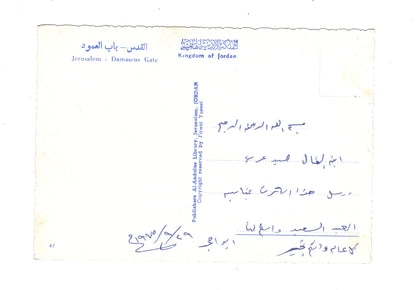 القدس - باب العمود
Jerusalem - Damascus Gate
المملكة الأردنية الهاشمية
Kingdom of Jordan
Publishers Al-Andalus Library, Jerusalem, JORDAN
Copyright reserved by Fawzi Yussef
بسم الله الرحمن الرحيم
ابن الخال
نرسل هذا الكرت بمناسبة
العيد السعيد
كل عام وانتم بخير
ابو